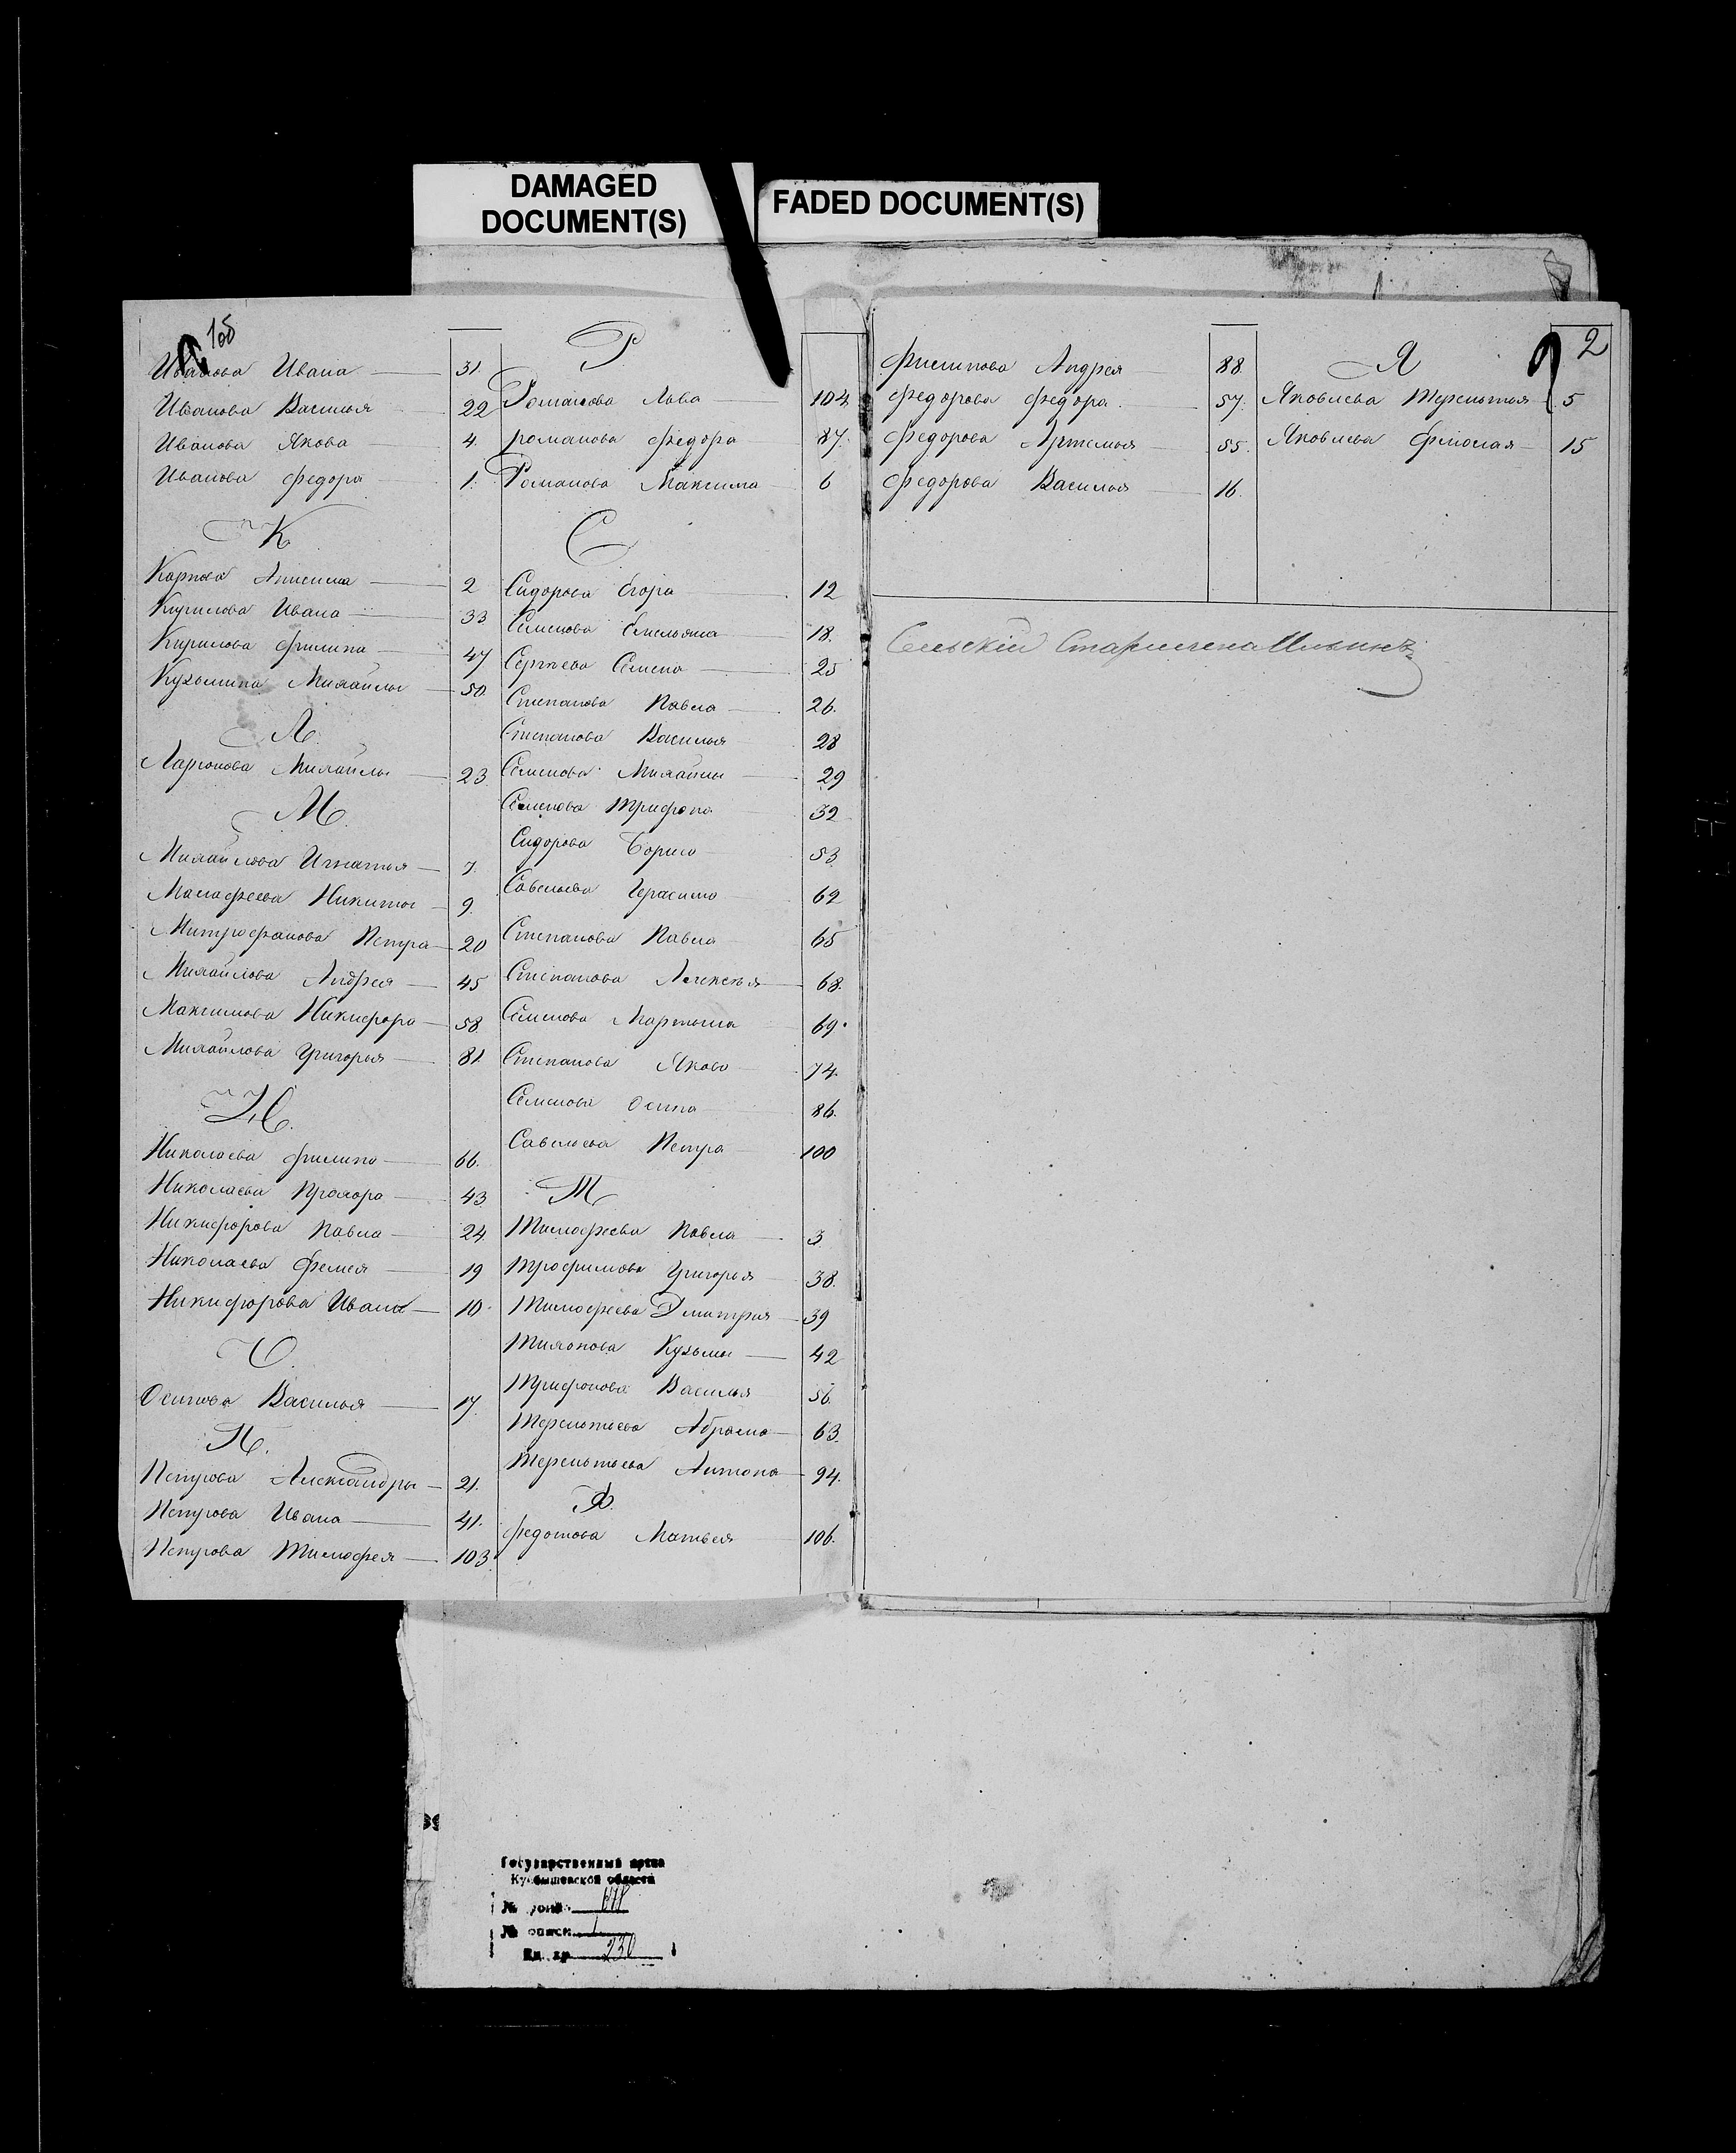 DAMAGED
DOCUMENT(S)
FADED DOCUMENT(S)
Иванова Ивана 31.
Иванова Василья 22
Иванова Якова 4.
Иванова Федора 1.
К
Карпова Анисима 2
Кирилова Ивана 33
Кирилова Филипа 47
Кузьмина Михайлы 50.
Л.
Ларионова Михайлы 23
М.
Михайлова Игнатья 7.
Малафеева Никиты 9.
Митрофанова Петра 20
Михайлова Андрея 45
Максимова Никифора 58
Михайлова Григорья 81.
Н.
Николаева Филипа 66.
Николаева Прохора 43
Никифорова Павла 24.
Николаева 19
Никифорова Ивана 10.
О.
Осипова Василья 17
П.
Петрова Александры 21.
Петрова Ивана 41.
Петрова Тимофея 103.
Р
Романова Льва 104.
Романова Федора 87.
Романова Максима 6
С
Сидорова Егора 12
Семенова Емельяна 18.
Сергеева Семена 25
Степанова Павла 26.
Степанова Василья 28
Семенова Михайлы 29
Семенова Трифона 32
Сидорова Бориса 53
Савельева Герасима 62
Степанова Павла 65
Степанова Алексея 68.
Семенова Мартына 69.
Степанова Якова 74.
Семенова Осипа 86.
Савельева Петра 100
Т
Тимофеева Павла 3.
Трофимова Григорья 38.
Тимофеева Дмитрия 39
Тихонова Кузьмы 42
Трифонова Василья 56.
Терентьева Абрама 63.
Терентьева Антона 94.
Ф.
Федотова Матвея 106.
2
Филипова Андрея 88.
Федорова Федора 57.
Федорова Артемья 55.
Федорова Василья 16.
Я
Яковлева Терентья 5
Яковлева 15
Сельскій Старшина Ильинъ
Государственный архив
Куйбышевской области
№ фонда
№ описи 1
Ед. хр. 230